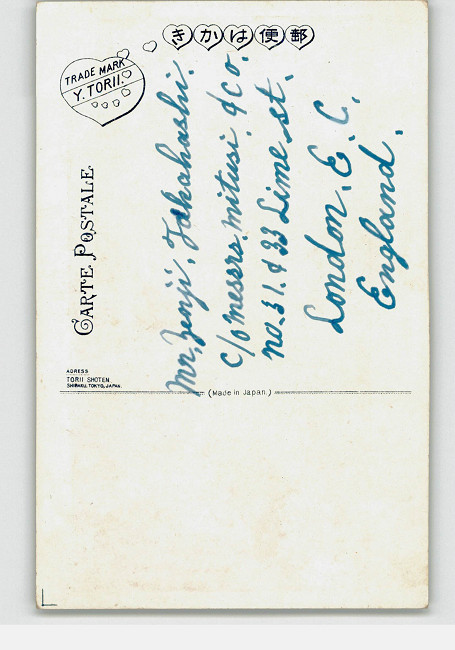 きかは便郵
TRADE MARK
Y. TORII.
CARTE POSTALE.
ADRESS
TORII SHOTEN.
SHIBAKU, TOKYO, JAPAN.
(Made in Japan.)
Mr. Zenji. Takahashi.
c/o messrs. mitusi. & Co.
no. 31. & 33 Lime st.
London. E. C.
England.